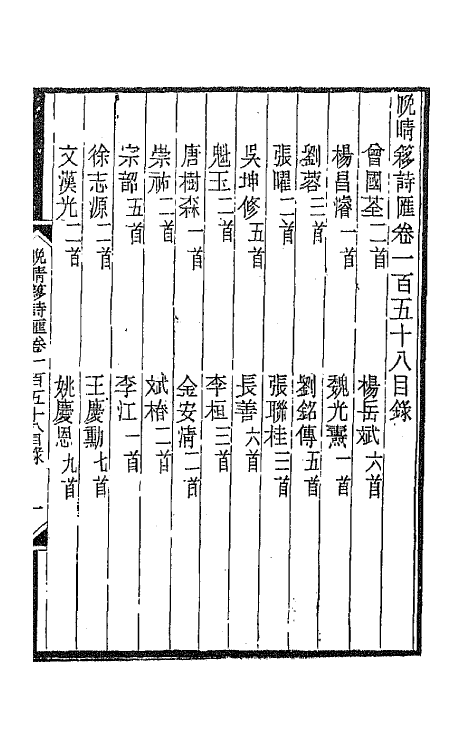 晩晴簃詩匯卷一百五十八目錄
曾國荃二首　楊岳斌六首
楊昌濬一首　魏光燾一首
劉蓉三首　劉銘傳五首
張曜二首　張聯桂三首
吳坤修五首　長善六首
魁玉二首　李桓三首
唐樹森一首　金安清二首
崇祐二首　斌椿二首
宗韶五首　李江一首
徐志源二首　王慶勳七首
文漢光二首　姚慶恩九首
晩晴簃詩匯卷一百五十八目錄　一